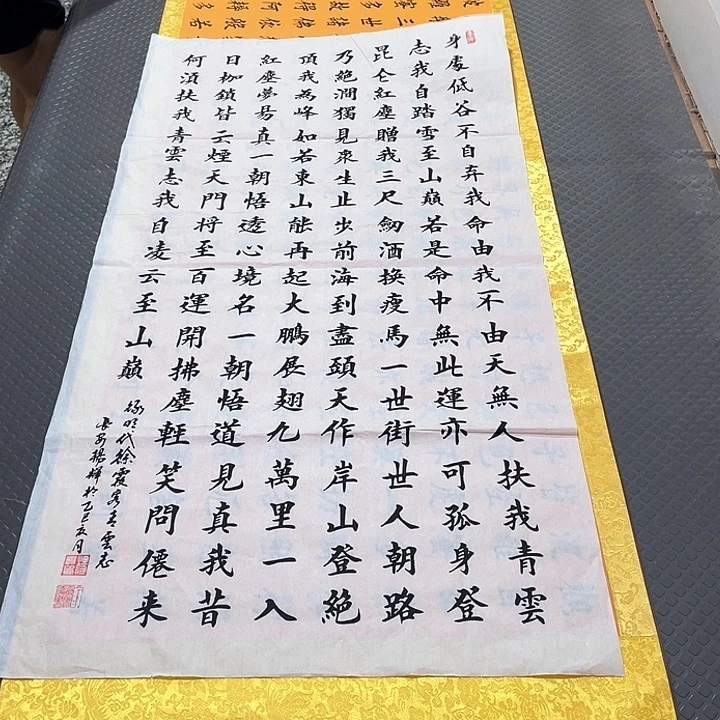 身處低谷不自弃我命由我不由天無人扶我青雲
志我自踏雪至山巔若是命中無此運亦可孤身登
昆仑紅塵贈我三尺劒酒換瘦馬一世街世人朝路
乃絕澗獨見衆生止步前海到盡頭天作岸山登絕
頂我為峰如若東山能再起大鵬展翅九萬里一入
紅塵夢易真一朝悟透心境名一朝悟道見真我昔
日枷鎖皆云煙天門将至百運開拂塵輕笑問僊来
何須扶我青雲志我自凌云至山巔
録明代徐霞客青雲志
長安楊輝於乙巳夏月